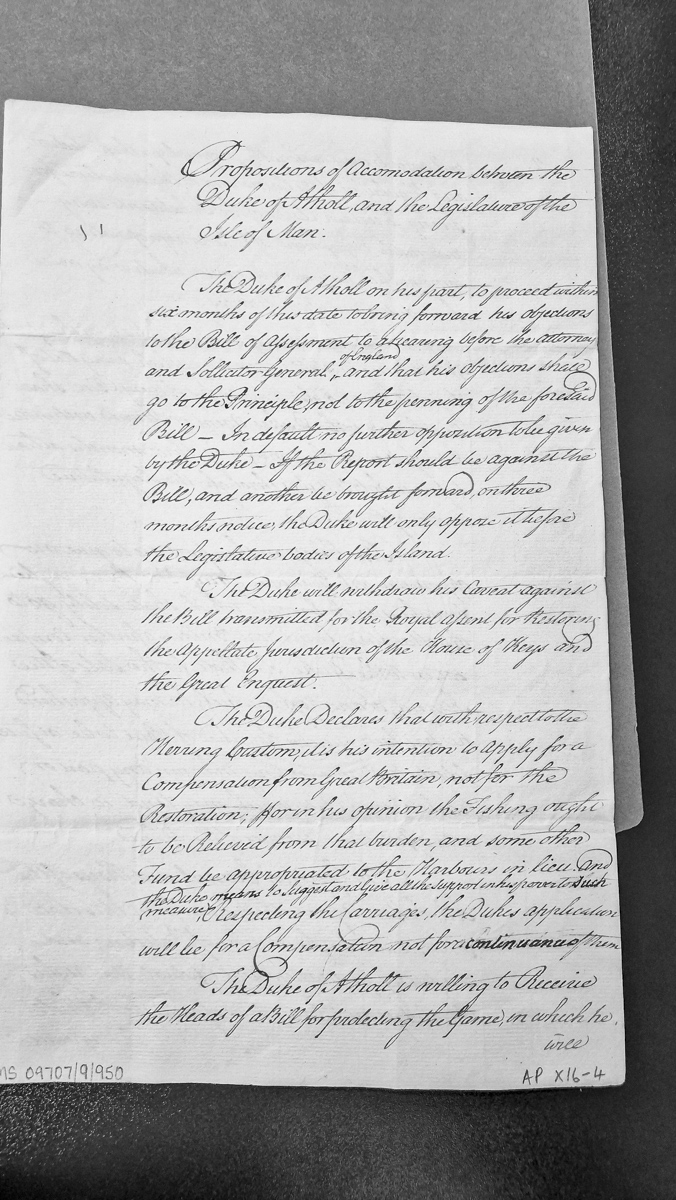 Propositions of Accomodation between the
Duke of Atholl, and the Legislature of the
Isle of Man.
The Duke of Atholl on his part, to proceed within
six months of this date to bring forward his objections
to the Bill of Assessment to a hearing before the attorney
and Sollicitor General, of England and that his objections shall
go to the Principle, not to the penning of the foresaid
Bill – In default no further opposition to be given
by the Duke – If the Report should be against the
Bill, and another be brought forward, on three
months notice, the Duke will only oppose it before
the Legislative bodies of the Island.
The Duke will withdraw his Caveat against
the Bill transmitted for the Royal Assent for Restoring
the Appellate Jurisdiction of the House of Keys and
the Great Enquest.
The Duke Declares that with respect to the
Herring Custom, it is his intention to apply for a
Compensation from Great Britain, not for the
Restoration; for in his opinion the Fishing ought
to be Relieved from that burden, and some other
Fund be appropriated to the Harbours in lieu and
the Duke means to Suggest and Give all the Support in his power to such
measure, respecting the Carriages, the Dukes application
will be for a Compensation not for a continuance of them
The Duke of Atholl is willing to Receive
the Heads of a Bill for protecting the Game, in which he
will
MS 09707/9/950
AP X16-4